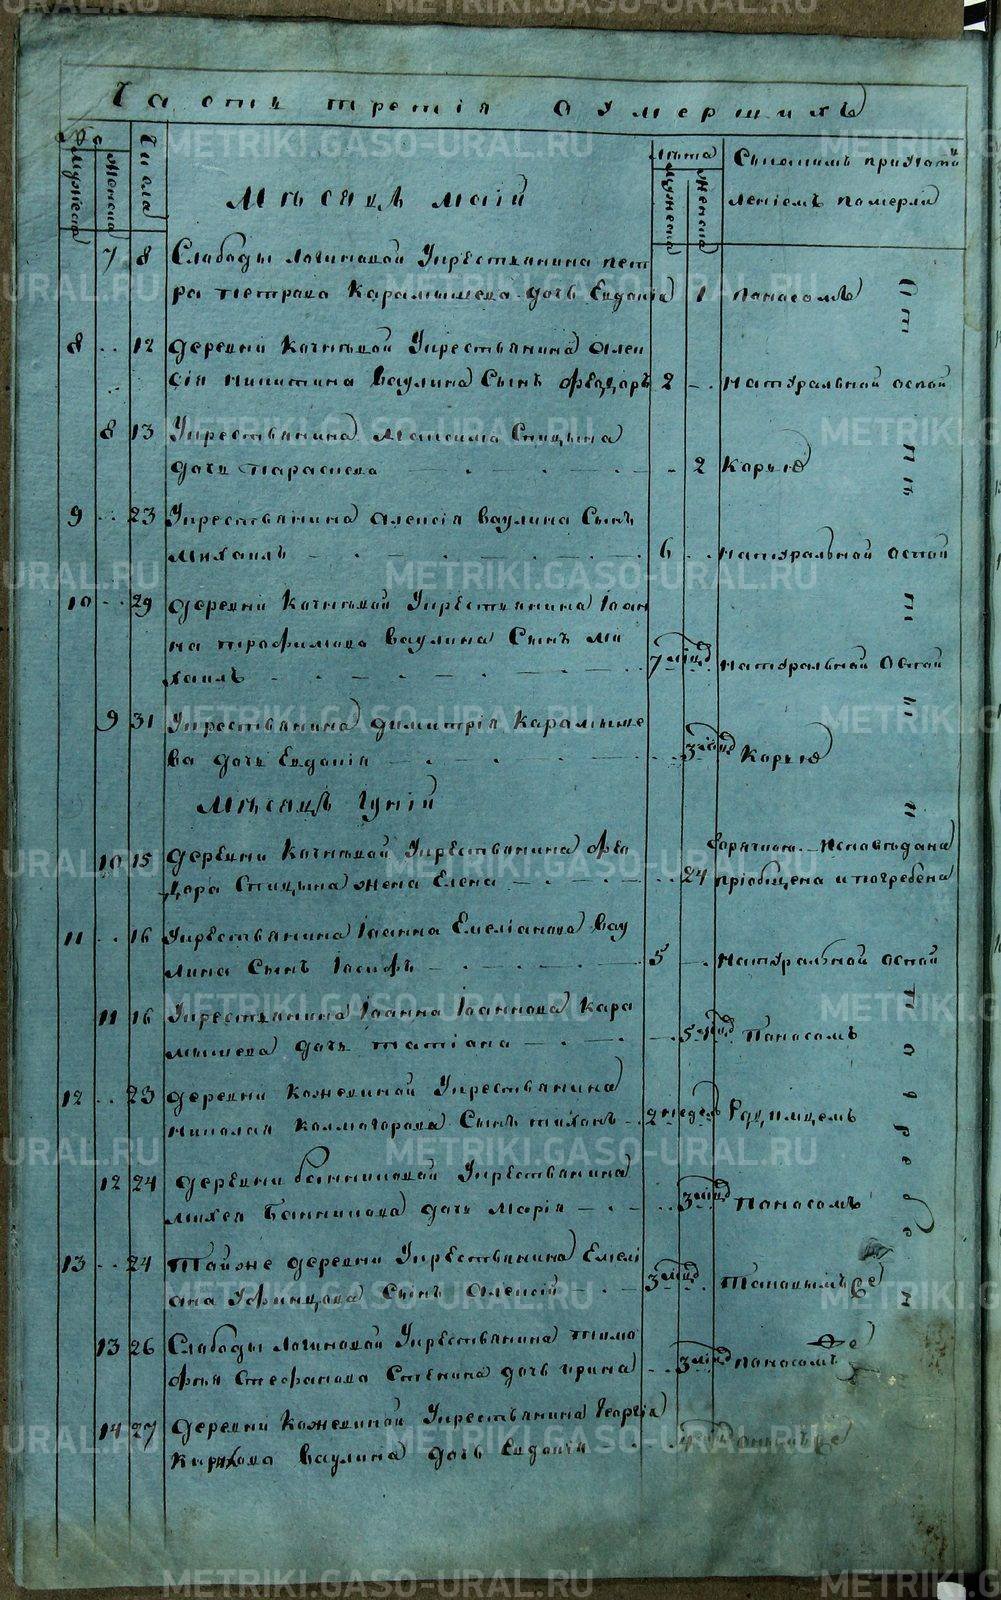 Часть третiя о умершихъ
Мужеска
Женска
Числа
Лѣта
Мужеска
Женска
померли
Мѣсяцъ маiй
7 8 Слабоды Логиновой Укрестьянина Пет
ра Петрова Карамышева дочь Евдокiя 1 Паносомъ
8 .. 12 деревни Кочнѣвой Укрестьянина Алек
сiя Никитина Ваулина Сынъ Феодоръ 2 Натуральной оспой
8 13 Укрестьянина Максима Спицына
дочь Параскева 2 Корью
9 .. 23 Укрестьянина Алексiя Ваулина Сынъ
Михаилъ 6 Натуральной оспой
10 .. 29 деревни Кочнѣвой Укрестьянина Iоан
на Трофимова Ваулина Сынъ Ми
хаилъ 7 мѣсяц. Натуральной оспой
9 31 Укрестьянина Димитрiя Карамыше
ва дочь Евдокiя 3 мѣсяц Корью
Мѣсяцъ Iунiй
10 15 деревни Кочнѣвой Укрестьянина Фео
дора Спицына жена Елена 24 Горячкою. Исповѣдана
прiобщена и погребена
11 .. 16 Укрестьянина Iоанна Емелiанова Вау
лина Сынъ Iосифъ 5 Натуральной оспой
11 16 Укрестьянина Iоанна Iоаннова Кара
мышева дочь Татiана 5 мѣсяц Паносомъ
12 .. 23 деревни Кожевиной Укрестьянина
Николая Колмогорова Сынъ Тихонъ 2 недѣль Родимцемъ
12 24 деревни Банниковой Укрестьянина
Михея Банникова дочь Марiя 3 мѣсяц Паносомъ
13 .. 24 Тойже деревни Укрестьянина Емелi
ана Уфинцова Сынъ Алексiй 3 мѣсяц Таковымъ же
13 26 Слабоды Логиновой Укрестьянина Тимо
фея Стефанова Стенина дочь Ирина 3 мѣсяц Паносомъ
14 27 деревни Кожевиной Укрестьянина Георгiя
Ваулина дочь Евдокiя
METRIKI.GASO-URAL.RU